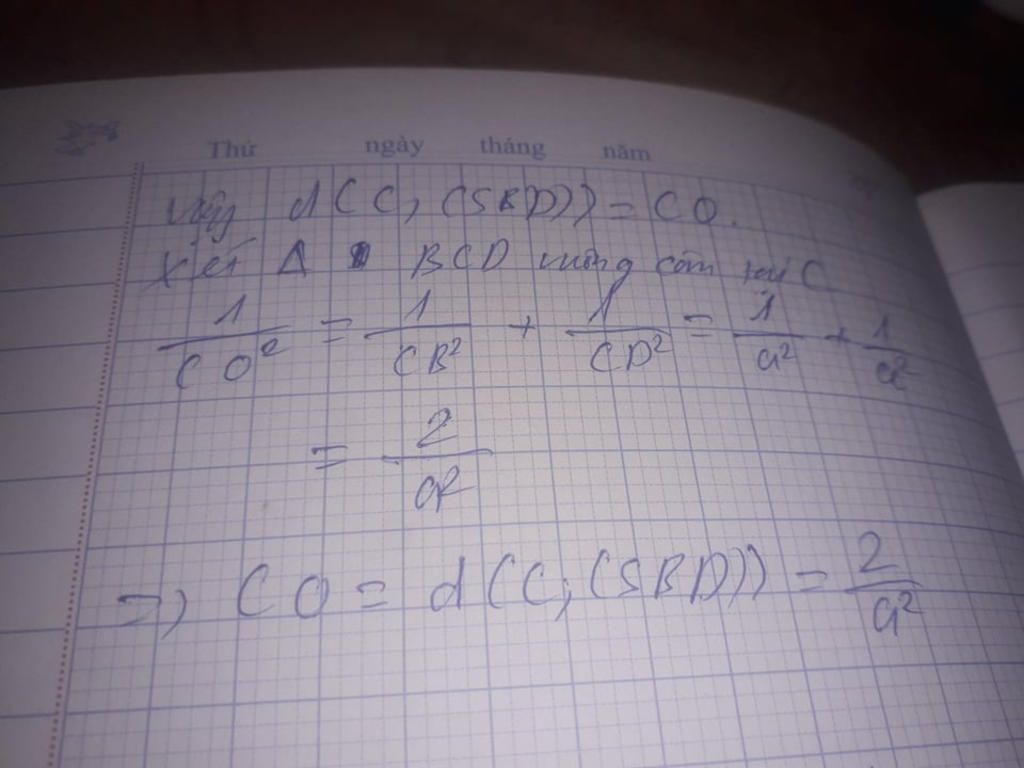 Thứ ngày tháng năm
Vậy d(C, (SBD)) = CO.
Xét Δ BCD vuông cân tại C
1/CO² = 1/CB² + 1/CD² = 1/a² + 1/a²
= 2/a²
=> CO = d(C, (SBD)) = 2/a²